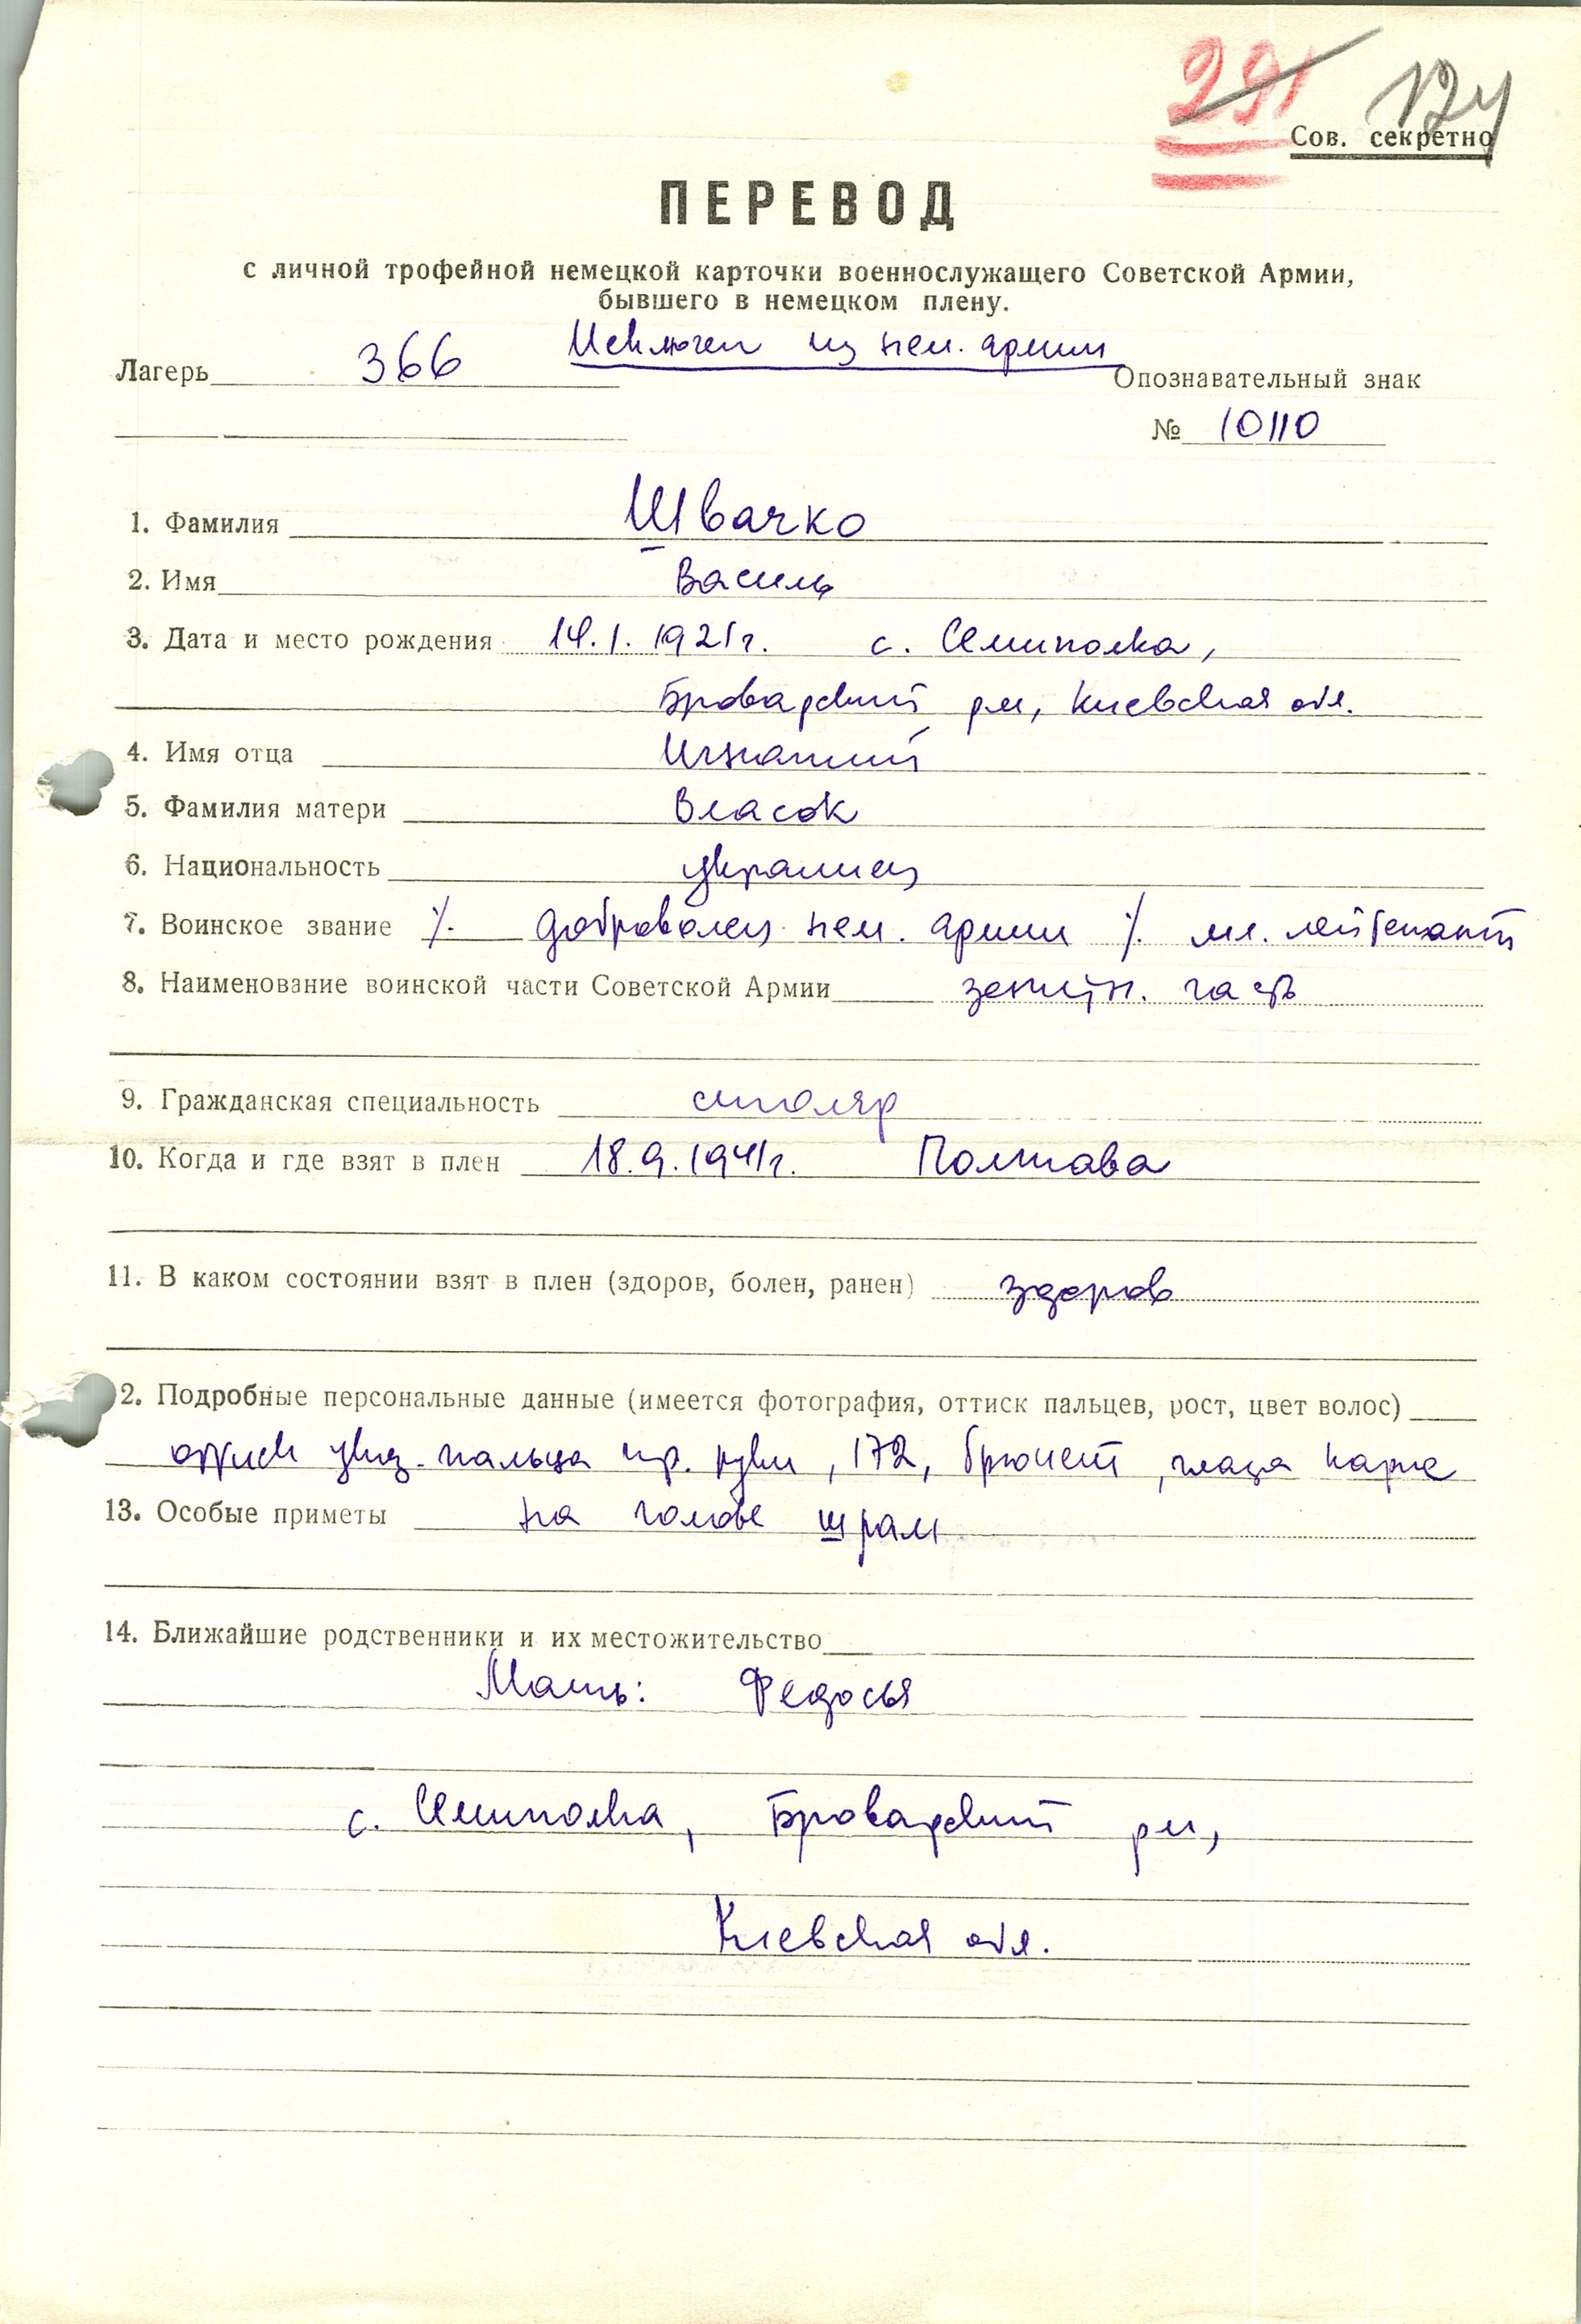 291 124
Сов. секретно
ПЕРЕВОД
с личной трофейной немецкой карточки военнослужащего Советской Армии,
бывшего в немецком плену.
Исключен из нем. армии
Лагерь 366 Опознавательный знак
№ 10110
1. Фамилия Швачко
2. Имя Василь
3. Дата и место рождения 14.1.1921г. с. Семиполка,
Броварский рн, Киевская обл.
4. Имя отца Игнатий
5. Фамилия матери Власок
6. Национальность украинец
7. Воинское звание ·/. доброволец нем. армии ·/. мл. лейтенант
8. Наименование воинской части Советской Армии зенитн. часть
9. Гражданская специальность столяр
10. Когда и где взят в плен 18.9.1941г. Полтава
11. В каком состоянии взят в плен (здоров, болен, ранен) здоров
2. Подробные персональные данные (имеется фотография, оттиск пальцев, рост, цвет волос)
оттиск указ. пальца пр. руки, 172, брюнет, глаза карие
13. Особые приметы на голове шрам
14. Ближайшие родственники и их местожительство
Мать: Федосья
с. Семиполка, Броварский рн,
Киевская обл.